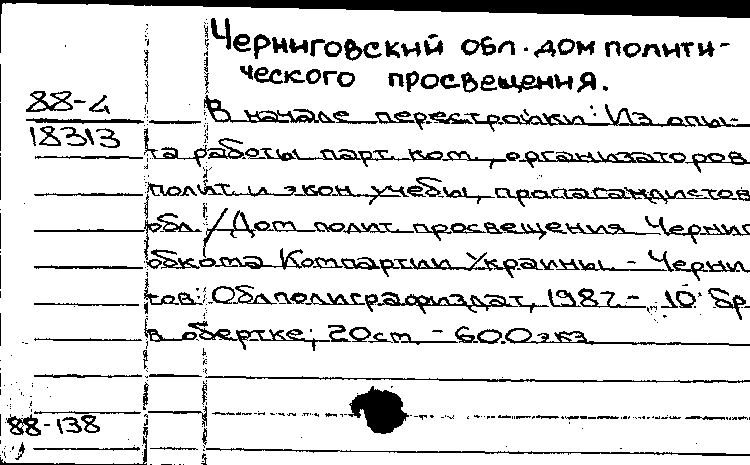 Черниговский обл. дом полити-
ческого просвещения.
88-4
18313
В начале перестройки: Из опы-
та работы парт. ком., организаторов
полит. и экон. учебы, пропагандистов
обл. /Дом полит. просвещения Черниг
обкома Компартии Украины. - Черни
гов: Облполиграфиздат, 1987. - 10 бр
в обертке; 20 см. - 600 экз.
88-138